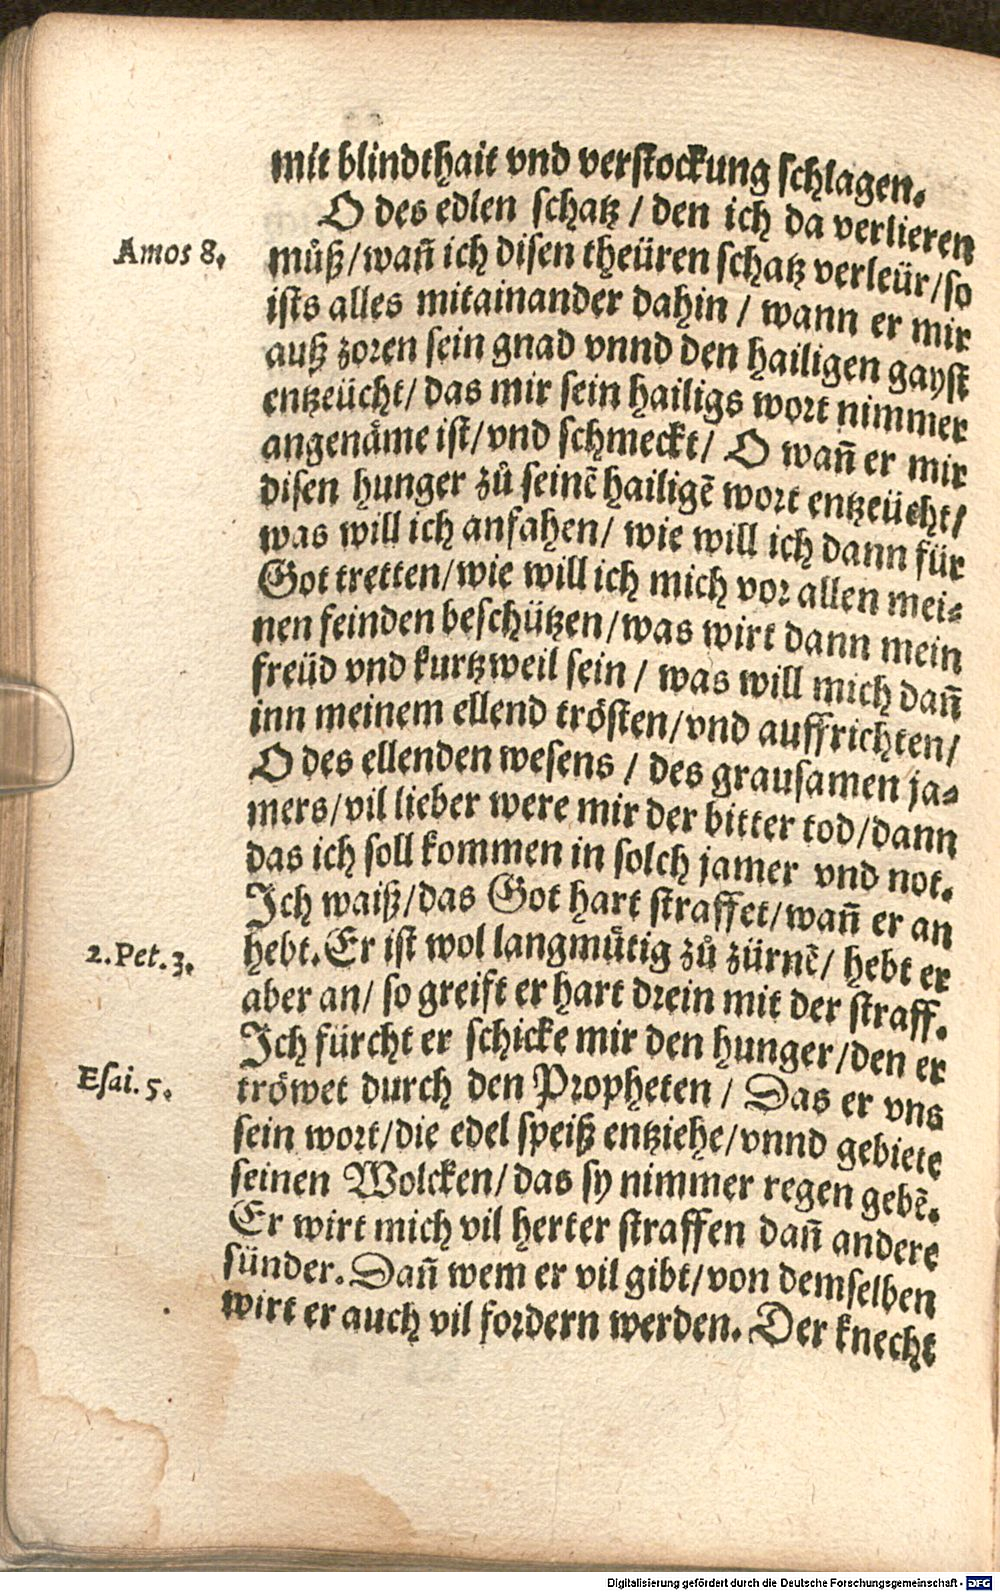 mit blindthait vnd verstockung schlagen.
O des edlen schatz / den ich da verlieren
Amos 8.
muͦß/wañ ich disen theüren schatz verleür/so
ists alles mitainander dahin / wann er mir
auß zoren sein gnad vnnd den hailigen gayst
entzeücht/ das mir sein hailigs wort nimmer
angenaͤme ist/vnd schmeckt/ O wañ er mir
disen hunger zuͦ seinē hailigē wort entzeücht/
was will ich anfahen/ wie will ich dann für
Got tretten/wie will ich mich vor allen mei-
nen feinden beschützen/was wirt dann mein
freüd vnd kurtzweil sein / was will mich dañ
inn meinem ellend troͤsten/vnd auffrichten/
O des ellenden wesens / des grausamen ja-
mers/vil lieber were mir der bitter tod/dann
das ich soll kommen in solch jamer vnd not.
Ich waiß/das Got hart straffet/wañ er an
2.Pet.3.
hebt.Er ist wol langmuͤtig zuͦ zürnē/ hebt er
aber an/ so greift er hart drein mit der straff.
Ich fürcht er schicke mir den hunger/den er
Esai.5.
troͤwet durch den Propheten / Das er vns
sein wort/die edel speiß entziehe/vnnd gebiete
seinen Wolcken/das sy nimmer regen gebē.
Er wirt mich vil herter straffen dañ andere
sünder.Dañ wem er vil gibt/von demselben
wirt er auch vil fordern werden. Der knecht
Digitalisierung gefördert durch die Deutsche Forschungsgemeinschaft - DFG